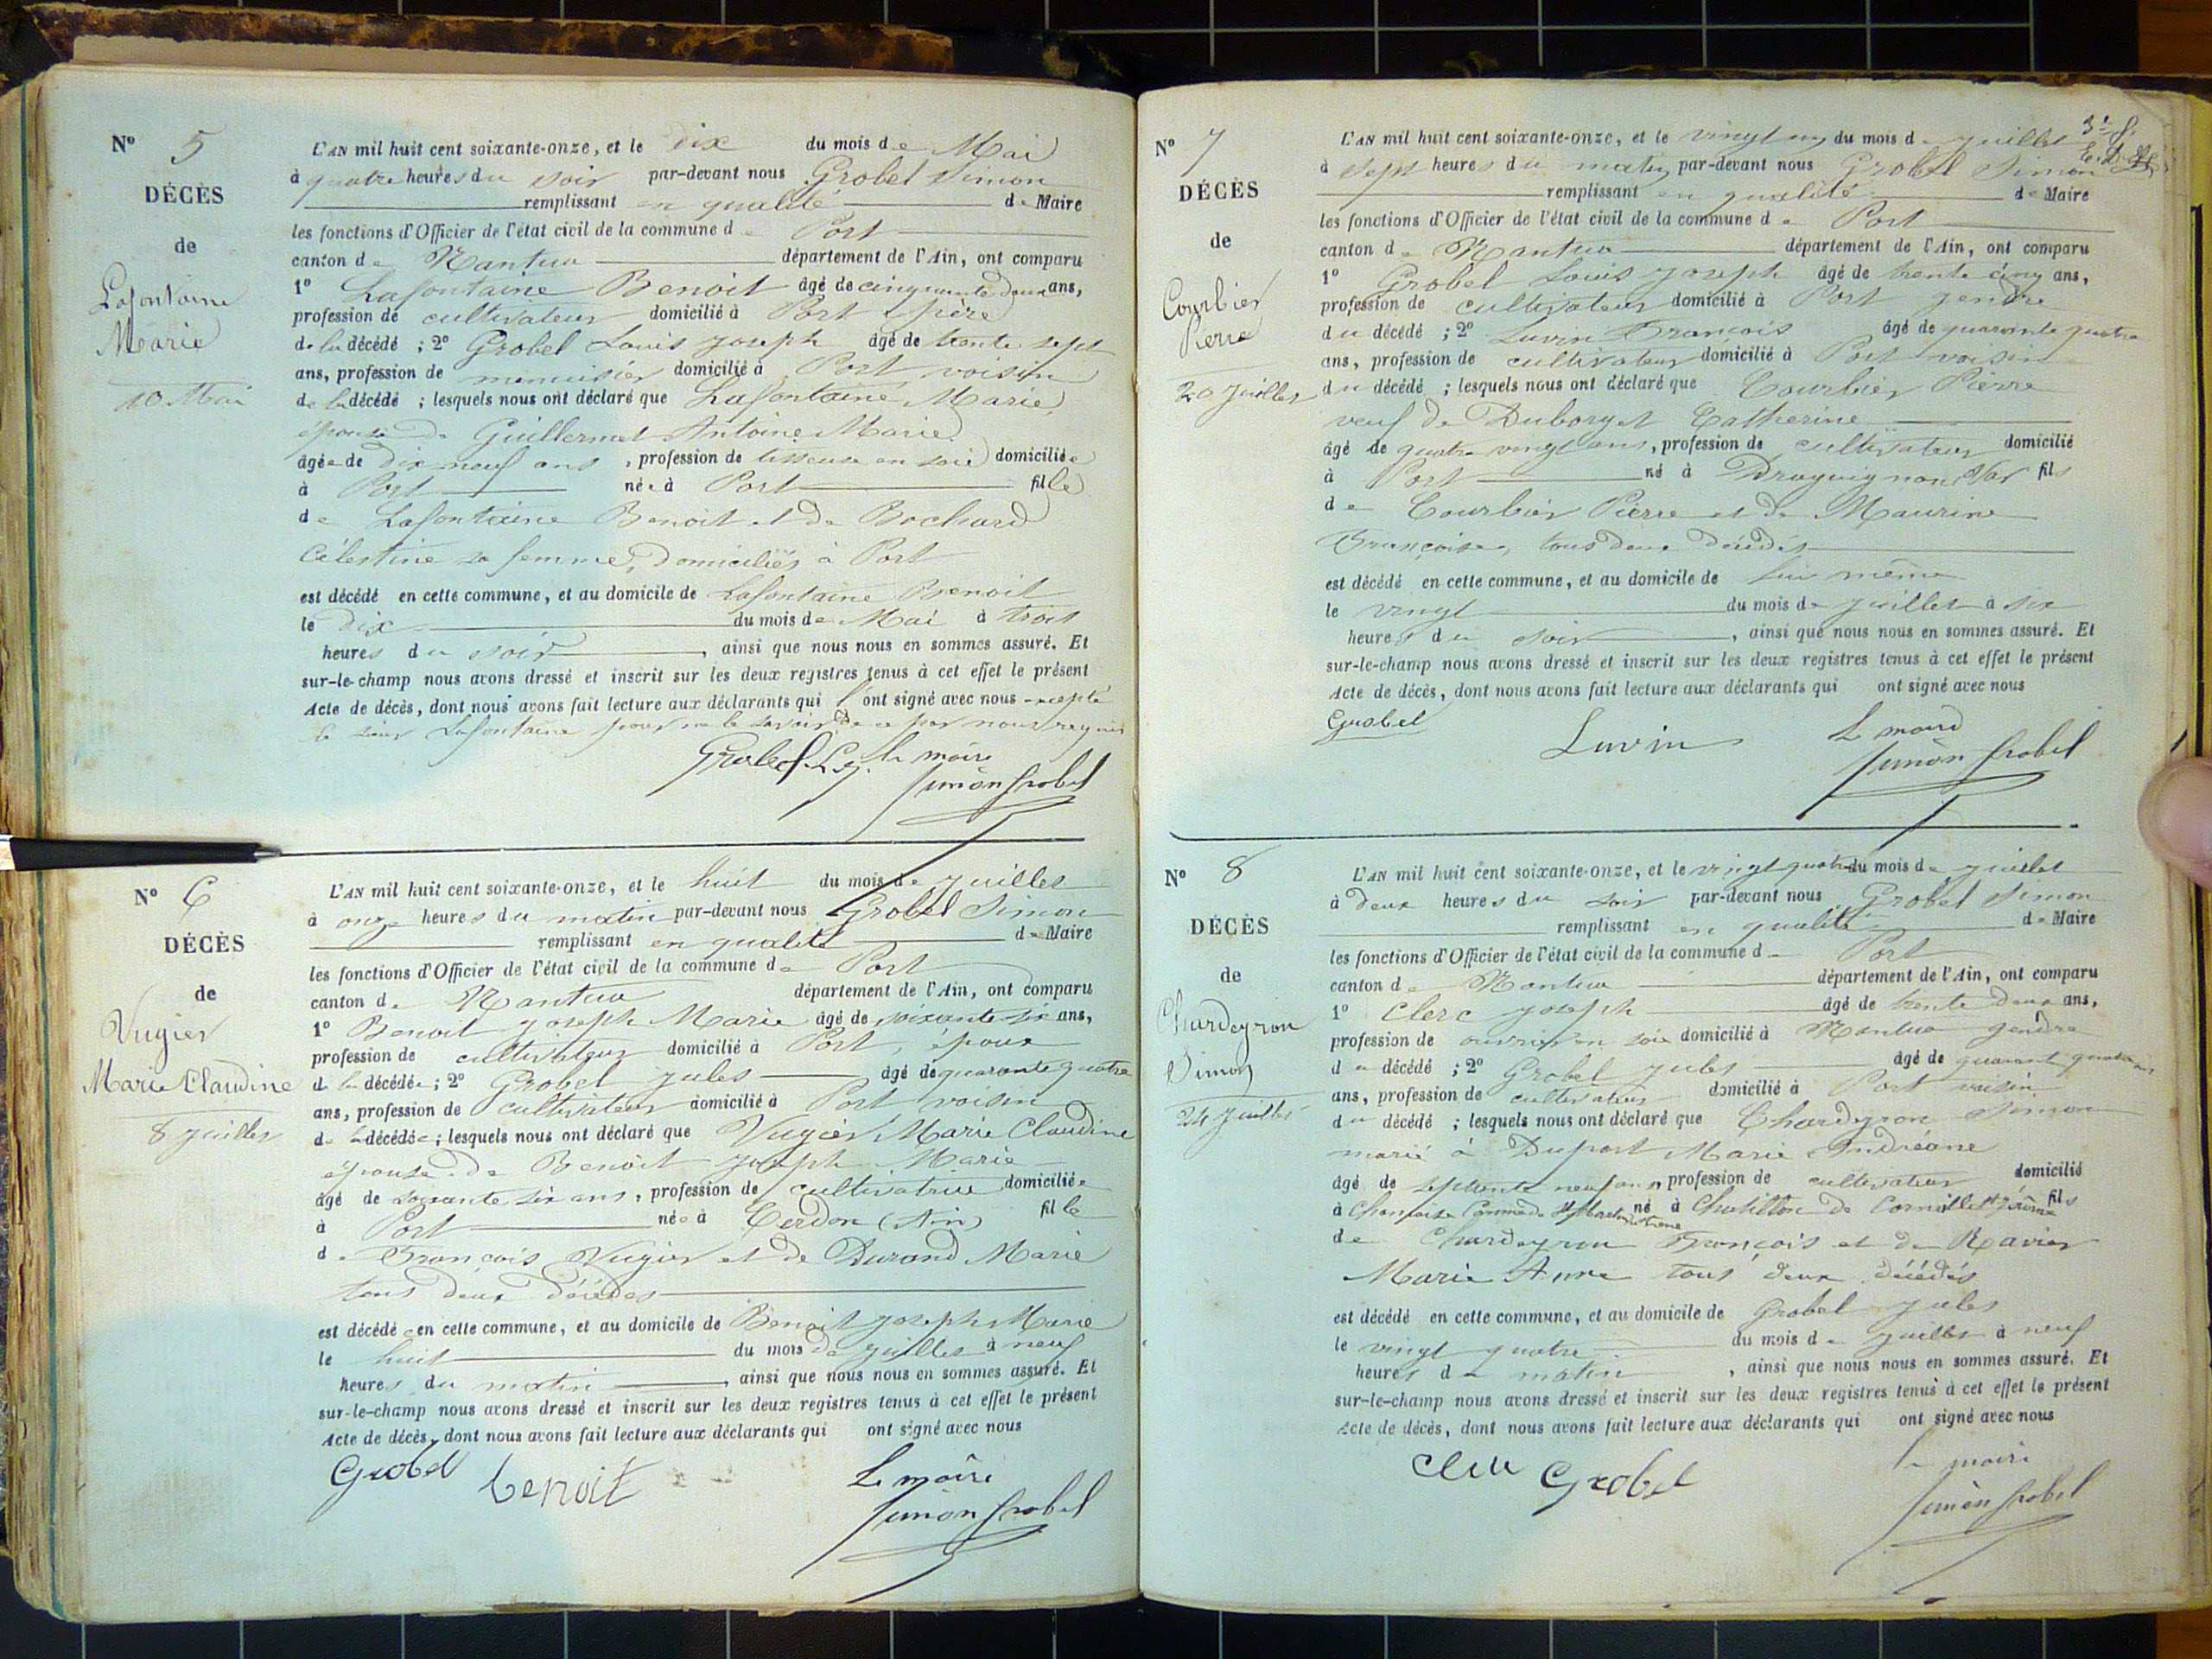 Nº 5
DÉCÈS
de
Lafontaine
Marie
10 Mai
L'AN mil huit cent soixante-onze, et le dix du mois de Mai
à quatre heures du soir par-devant nous Grobel Simon
remplissant en qualité de Maire
les fonctions d'Officier de l'état civil de la commune de Port
canton de Nantua département de l'Ain, ont comparu
1º Lafontaine Benoit âgé de cinquante deux ans,
profession de cultivateur domicilié à Port père
de la décédé ; 2º Grobel Louis Joseph âgé de trente sept
ans, profession de menuisier domicilié à Port voisin
de la décédé ; lesquels nous ont déclaré que Lafontaine Marie,
épouse de Guillermet Antoine Marie
âgée de dix neuf ans , profession de tisseuse en soie domiciliée
à Port née à Port fille
de Lafontaine Benoit et de Bochard
Célestine sa femme, domiciliés à Port
est décédé en cette commune, et au domicile de Lafontaine Benoit
le dix du mois de Mai à trois
heures du soir , ainsi que nous nous en sommes assuré. Et
sur-le-champ nous avons dressé et inscrit sur les deux registres tenus à cet effet le présent
Acte de décès, dont nous avons fait lecture aux déclarants qui l'ont signé avec nous excepté
le sieur Lafontaine pour ne le savoir de ce par nous requis
Grobel L. J. le maire
Simon Grobel
Nº 6
DÉCÈS
de
Vugier
Marie Claudine
8 Juillet
L'AN mil huit cent soixante-onze, et le huit du mois de Juillet
à onze heures du matin par-devant nous Grobel Simon
remplissant en qualité de Maire
les fonctions d'Officier de l'état civil de la commune de Port
canton de Nantua département de l'Ain, ont comparu
1º Benoit Joseph Marie âgé de soixante six ans,
profession de cultivateur domicilié à Port, époux
de la décédée ; 2º Grobel Jules âgé de quarante quatre
ans, profession de cultivateur domicilié à Port voisin
de la décédée ; lesquels nous ont déclaré que Vugier Marie Claudine
épouse de Benoit Joseph Marie
âgé de soixante six ans , profession de cultivatrice domiciliée
à Port née à Cerdon (Ain) fille
de François Vugier et de Durand Marie
tous deux décédés
est décédée en cette commune, et au domicile de Benoit Joseph Marie
le huit du mois de juillet à neuf
heures du matin , ainsi que nous nous en sommes assuré. Et
sur-le-champ nous avons dressé et inscrit sur les deux registres tenus à cet effet le présent
Acte de décès, dont nous avons fait lecture aux déclarants qui ont signé avec nous
Grobel benoit Le maire
Simon Grobel
Nº 7
DÉCÈS
de
Courbier
Pierre
20 Juillet
L'AN mil huit cent soixante-onze, et le vingt un du mois de juillet
à sept heures du matin par-devant nous Grobel Simon
remplissant en qualité de Maire
les fonctions d'Officier de l'état civil de la commune de Port
canton de Nantua département de l'Ain, ont comparu
1º Grobel Louis Joseph âgé de trente cinq ans,
profession de cultivateur domicilié à Port gendre
du décédé ; 2º Luvin François âgé de quarante quatre
ans, profession de cultivateur domicilié à Port voisin
du décédé ; lesquels nous ont déclaré que Courbier Pierre
veuf de Duborget Catherine
âgé de quatre vingt ans, profession de cultivateur domicilié
à Port né à Draguignan Var fils
de Courbier Pierre et de Maurine
Françoise, tous deux décédés
est décédé en cette commune, et au domicile de lui même
le vingt du mois de juillet à six
heures du soir , ainsi que nous nous en sommes assuré. Et
sur-le-champ nous avons dressé et inscrit sur les deux registres tenus à cet effet le présent
Acte de décès, dont nous avons fait lecture aux déclarants qui ont signé avec nous
Grobel Luvin Le maire
Simon Grobel
Nº 8
DÉCÈS
de
Chardeyron
Simon
24 Juillet
L'AN mil huit cent soixante-onze, et le vingt quatre du mois de juillet
à deux heures du soir par-devant nous Grobel Simon
remplissant en qualité de Maire
les fonctions d'Officier de l'état civil de la commune de Port
canton de Nantua département de l'Ain, ont comparu
1º Clerc Joseph âgé de trente deux ans,
profession de ouvrier en soie domicilié à Nantua gendre
du décédé ; 2º Grobel Jules âgé de quarante quatre
ans, profession de cultivateur domicilié à Port voisin
du décédé ; lesquels nous ont déclaré que Chardeyron Simon
marié à Dupart Marie Andréane
âgé de septente neuf ans profession de cultivateur domicilié
à né à Chatillon de Corneille St Jérôme fils
de Chardeyron François et de Ravier
Marie Anne tous deux décédés
est décédé en cette commune, et au domicile de Grobel Jules
le vingt quatre du mois de juillet à neuf
heures du matin , ainsi que nous nous en sommes assuré. Et
sur-le-champ nous avons dressé et inscrit sur les deux registres tenus à cet effet le présent
Acte de décès, dont nous avons fait lecture aux déclarants qui ont signé avec nous
Clerc Grobel le maire
Simon Grobel